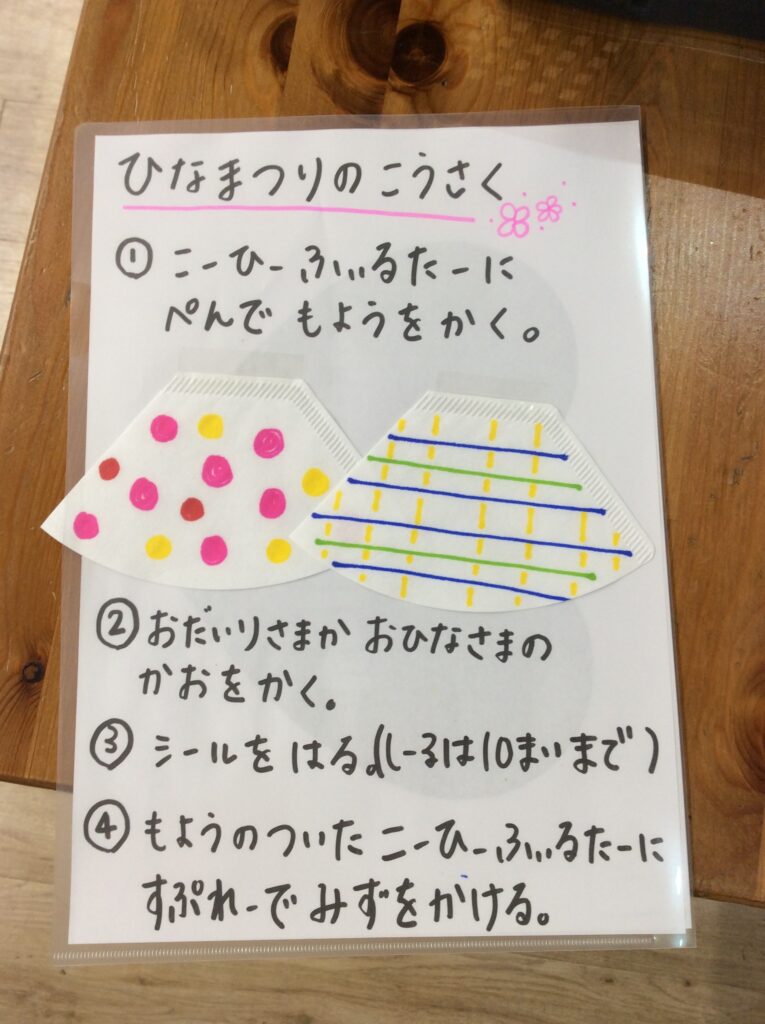 ひなまつりのこうさく
① こーひーふぃるたーに
ぺんで もようをかく。
② おだいりさまか おひなさまの
かおをかく。
③ シールを はる。(しーるは10まいまで)
④ もようのついた こーひーふぃるたーに
すぷれーで みずをかける。